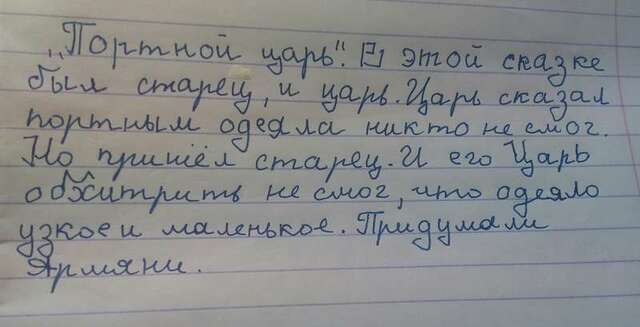 „Портной царь". В этой сказке
был старец, и царь. Царь сказал
портным одеяла никто не смог.
Но пришёл старец. И его Царь
обхитрить не смог, что одеяло
узкое и маленькое. Придумали
Армяни.